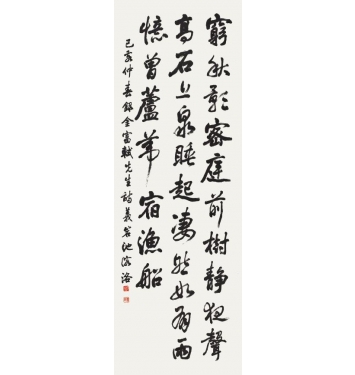 窮秋影密庭前樹靜夜聲
高石上泉睡起凄然如有雨
憶曾蘆葦宿漁船
己亥仲春錄金富軾先生詩義